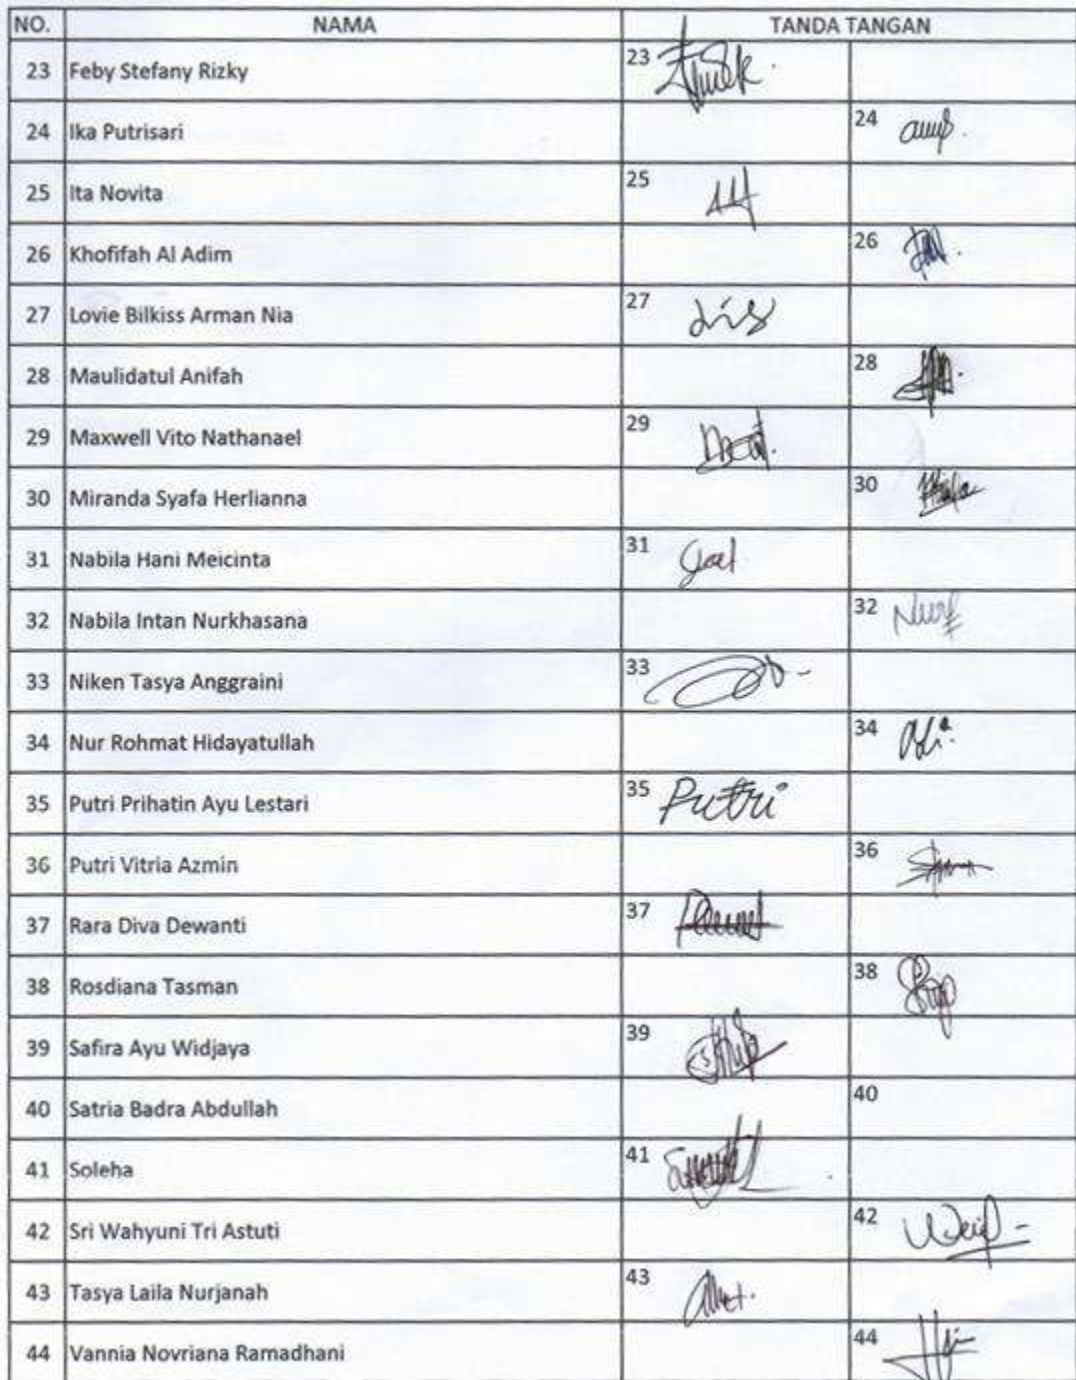 NO. NAMA TANDA TANGAN
23 Feby Stefany Rizky 23
24 Ika Putrisari 24
25 Ita Novita 25
26 Khofifah Al Adim 26
27 Lovie Bilkiss Arman Nia 27
28 Maulidatul Anifah 28
29 Maxwell Vito Nathanael 29
30 Miranda Syafa Herlianna 30
31 Nabila Hani Meicinta 31
32 Nabila Intan Nurkhasana 32
33 Niken Tasya Anggraini 33
34 Nur Rohmat Hidayatullah 34
35 Putri Prihatin Ayu Lestari 35 Putri
36 Putri Vitria Azmin 36
37 Rara Diva Dewanti 37
38 Rosdiana Tasman 38
39 Safira Ayu Widjaya 39
40 Satria Badra Abdullah 40
41 Soleha 41
42 Sri Wahyuni Tri Astuti 42
43 Tasya Laila Nurjanah 43
44 Vannia Novriana Ramadhani 44